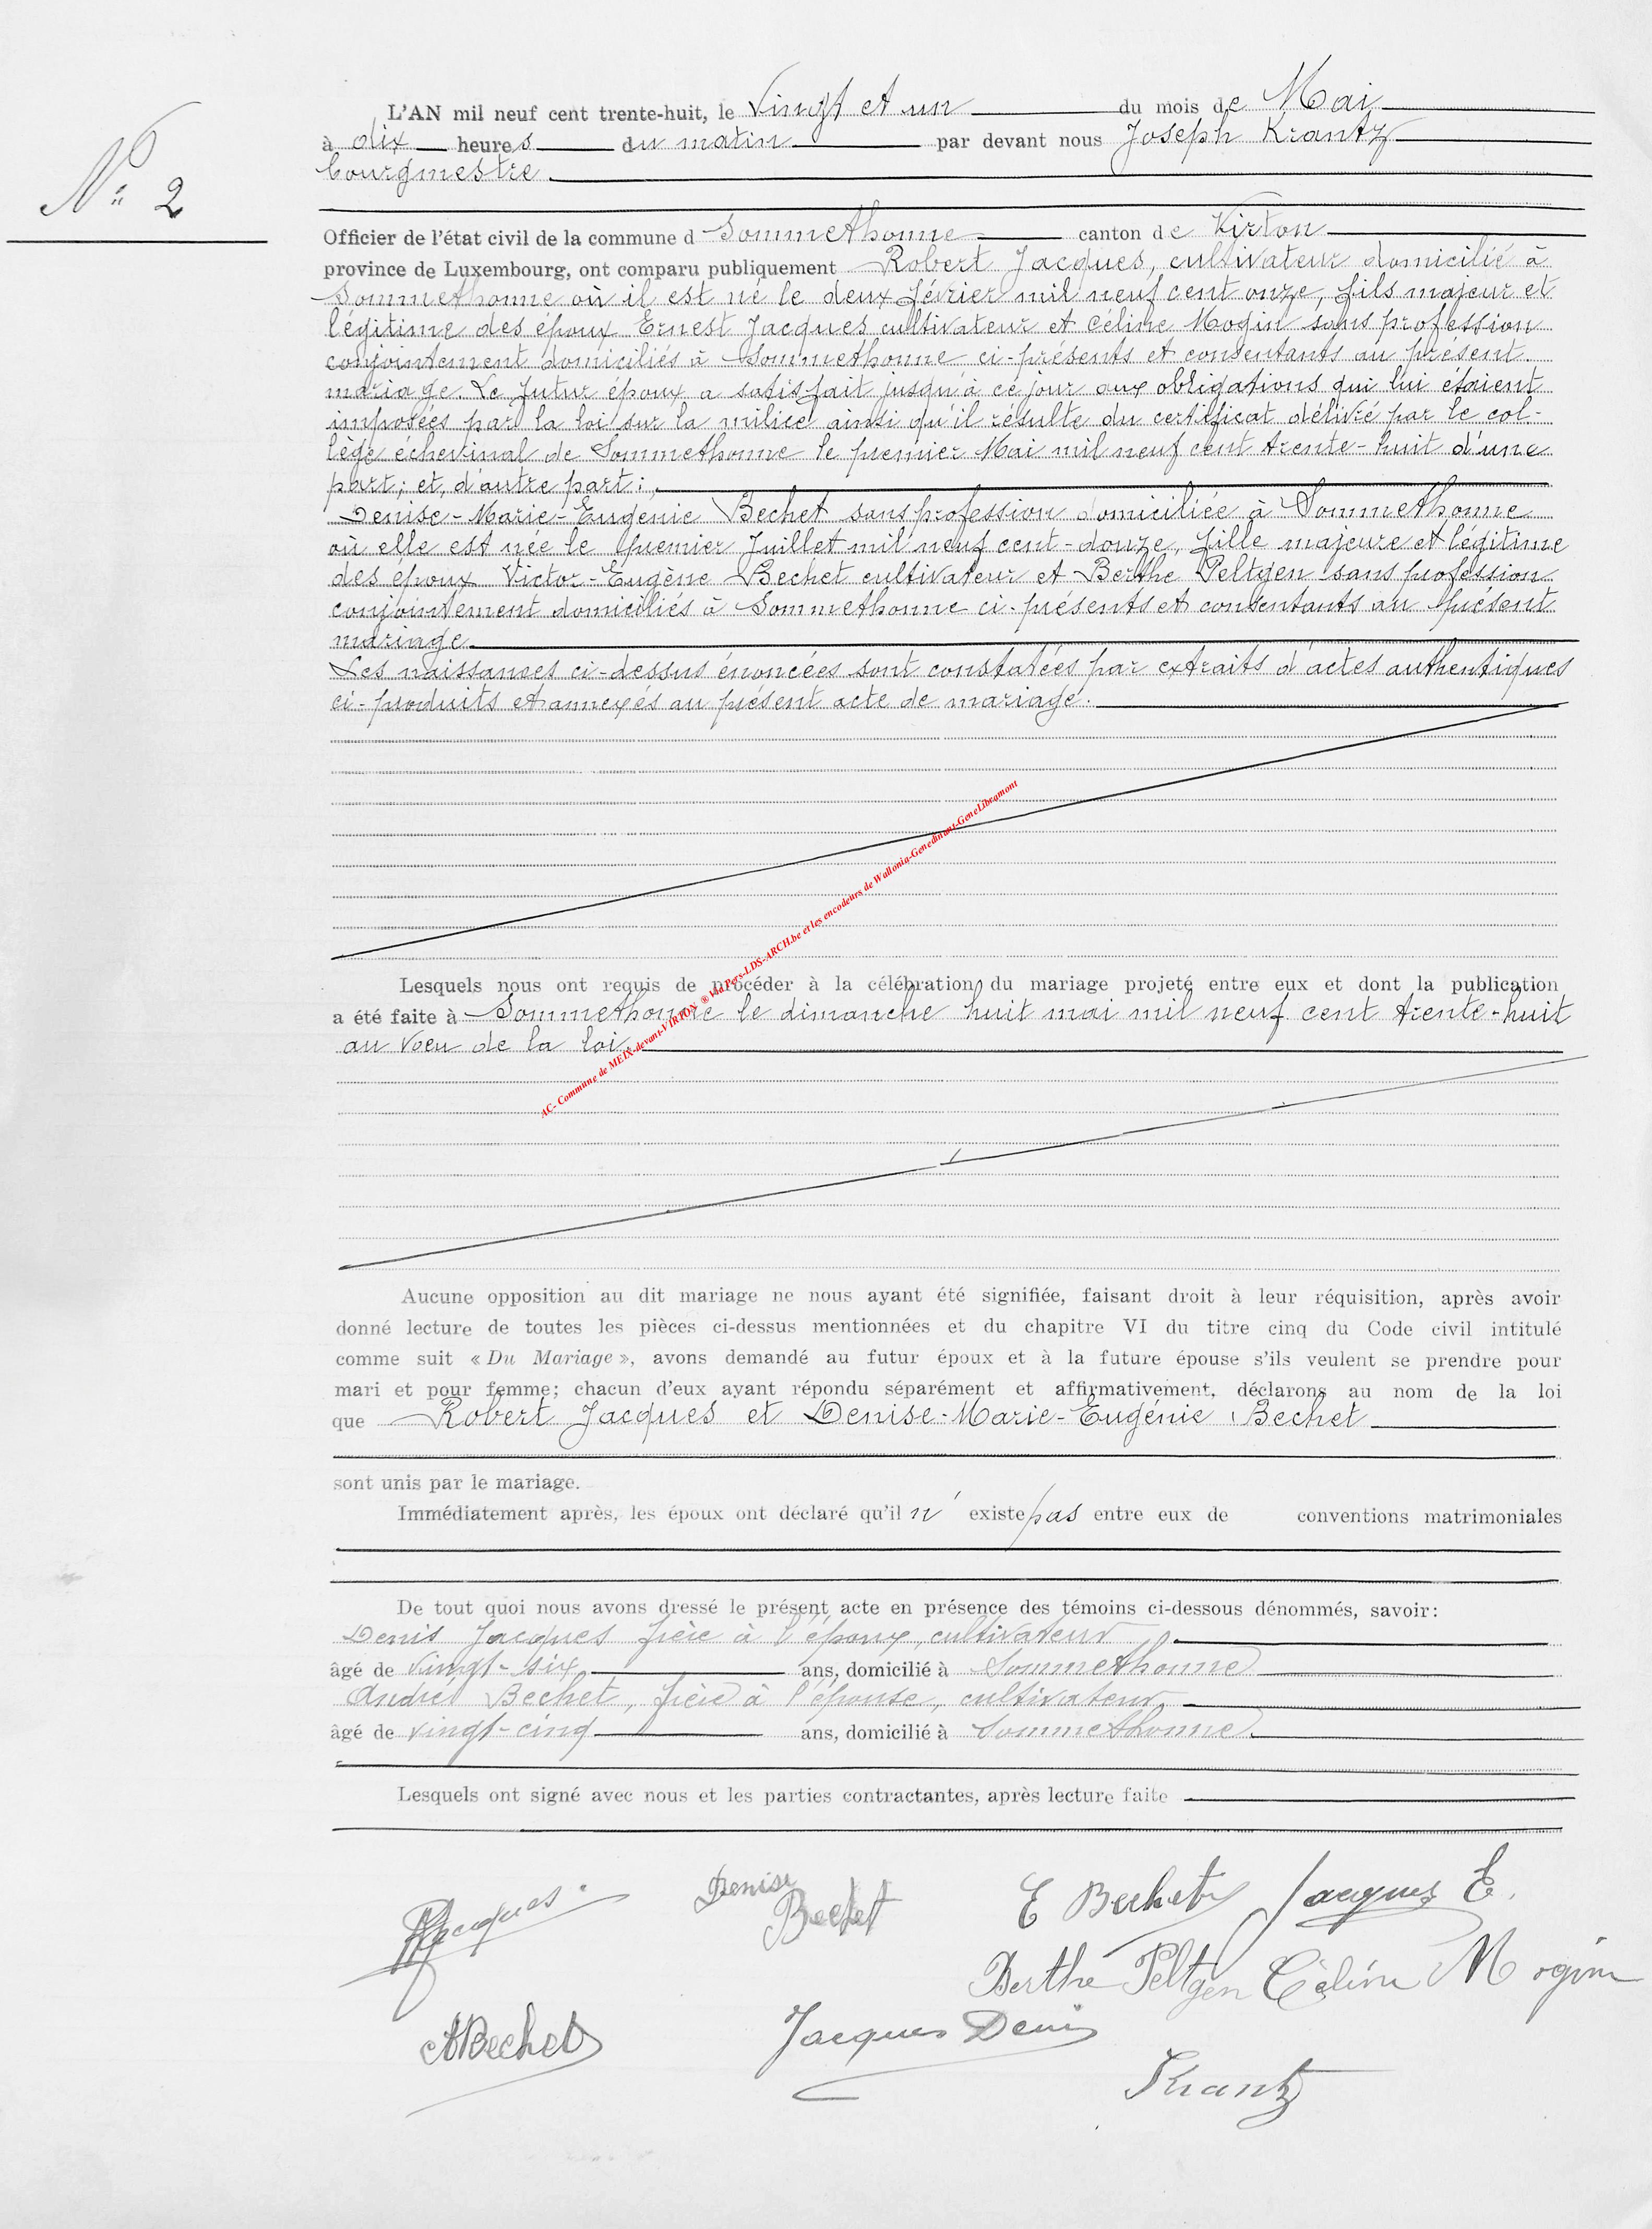 N° 2
L'AN mil neuf cent trente-huit, le Vingt et un du mois de Mai
à dix heures du matin par devant nous Joseph Krantz
bourgmestre.
Officier de l'état civil de la commune d Sommethonne canton de Virton
province de Luxembourg, ont comparu publiquement Robert Jacques, cultivateur domicilié à
Sommethonne où il est né le deux février mil neuf cent onze, fils majeur et
légitime des époux Ernest Jacques cultivateur et Céline Mogin sans profession
conjointement domiciliés à Sommethonne ci-présents et consentants au présent
mariage. Le futur époux a satisfait jusqu'à ce jour aux obligations qui lui étaient
imposées par la loi sur la milice ainsi qu'il résulte du certificat délivré par le col-
lège échevinal de Sommethonne le premier Mai mil neuf cent trente-huit d'une
part; et, d'autre part:
Denise-Marie-Eugénie Bechet sans profession domiciliée à Sommethonne
où elle est née le premier Juillet mil neuf cent-douze, fille majeure et légitime
des époux Victor-Eugène Bechet cultivateur et Berthe Peltgen sans profession
conjointement domiciliés à Sommethonne ci-présents et consentants au présent
mariage
Les naissances ci-dessus énoncées sont constatées par extraits d'actes authentiques
ci-produits et annexés au présent acte de mariage.
AC- Commune de MEIX-devant-VIRTON ® Via Pers-LDS-ARCH.be et les encodeurs de Wallonia-Genedinant-GeneLibramont
Lesquels nous ont requis de procéder à la célébration du mariage projeté entre eux et dont la publication
a été faite à Sommethonne le dimanche huit mai mil neuf cent trente-huit
au voeu de la loi.
Aucune opposition au dit mariage ne nous ayant été signifiée, faisant droit à leur réquisition, après avoir
donné lecture de toutes les pièces ci-dessus mentionnées et du chapitre VI du titre cinq du Code civil intitulé
comme suit « Du Mariage », avons demandé au futur époux et à la future épouse s'ils veulent se prendre pour
mari et pour femme; chacun d'eux ayant répondu séparément et affirmativement, déclarons au nom de la loi
que Robert Jacques et Denise-Marie-Eugénie Bechet
sont unis par le mariage.
Immédiatement après, les époux ont déclaré qu'il n' existe pas entre eux de conventions matrimoniales
De tout quoi nous avons dressé le présent acte en présence des témoins ci-dessous dénommés, savoir:
Denis Jacques frère à l'époux, cultivateur
âgé de vingt-six ans, domicilié à Sommethonne
André Bechet, frère à l'épouse, cultivateur,
âgé de vingt-cinq ans, domicilié à Sommethonne.
Lesquels ont signé avec nous et les parties contractantes, après lecture faite
RJacques Denise Bechet E Bechet Jacques E.
Berthe Peltgen Céline Mogin
ABechet Jacques Denis
Krantz